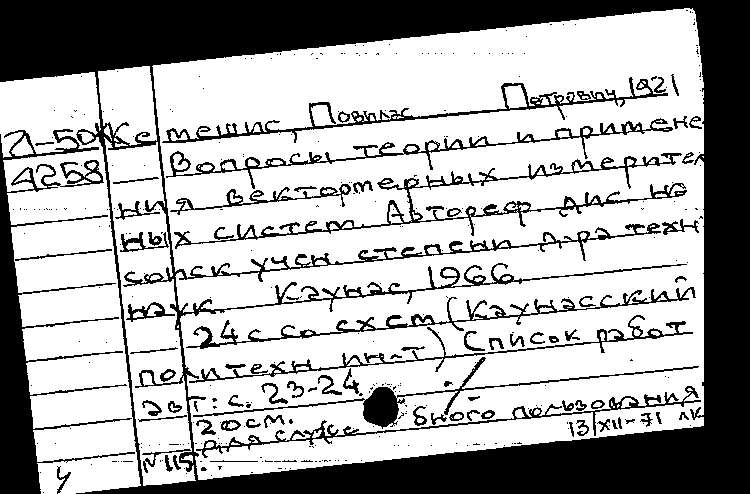 Л-50К Кемешис, Повилас Петрович, 1921
4258 Вопросы теории и примене
ния вектормерных измерител
ных систем. Автореф. дис. на
соиск. учен. степени д-ра техн
наук. Каунас, 1966.
24 с. со схем. (Каунасский
политехн. ин-т) Список работ
авт: с. 23-24
20 см.
Для служебного пользования
№ 115 13/XII-71 ЛК